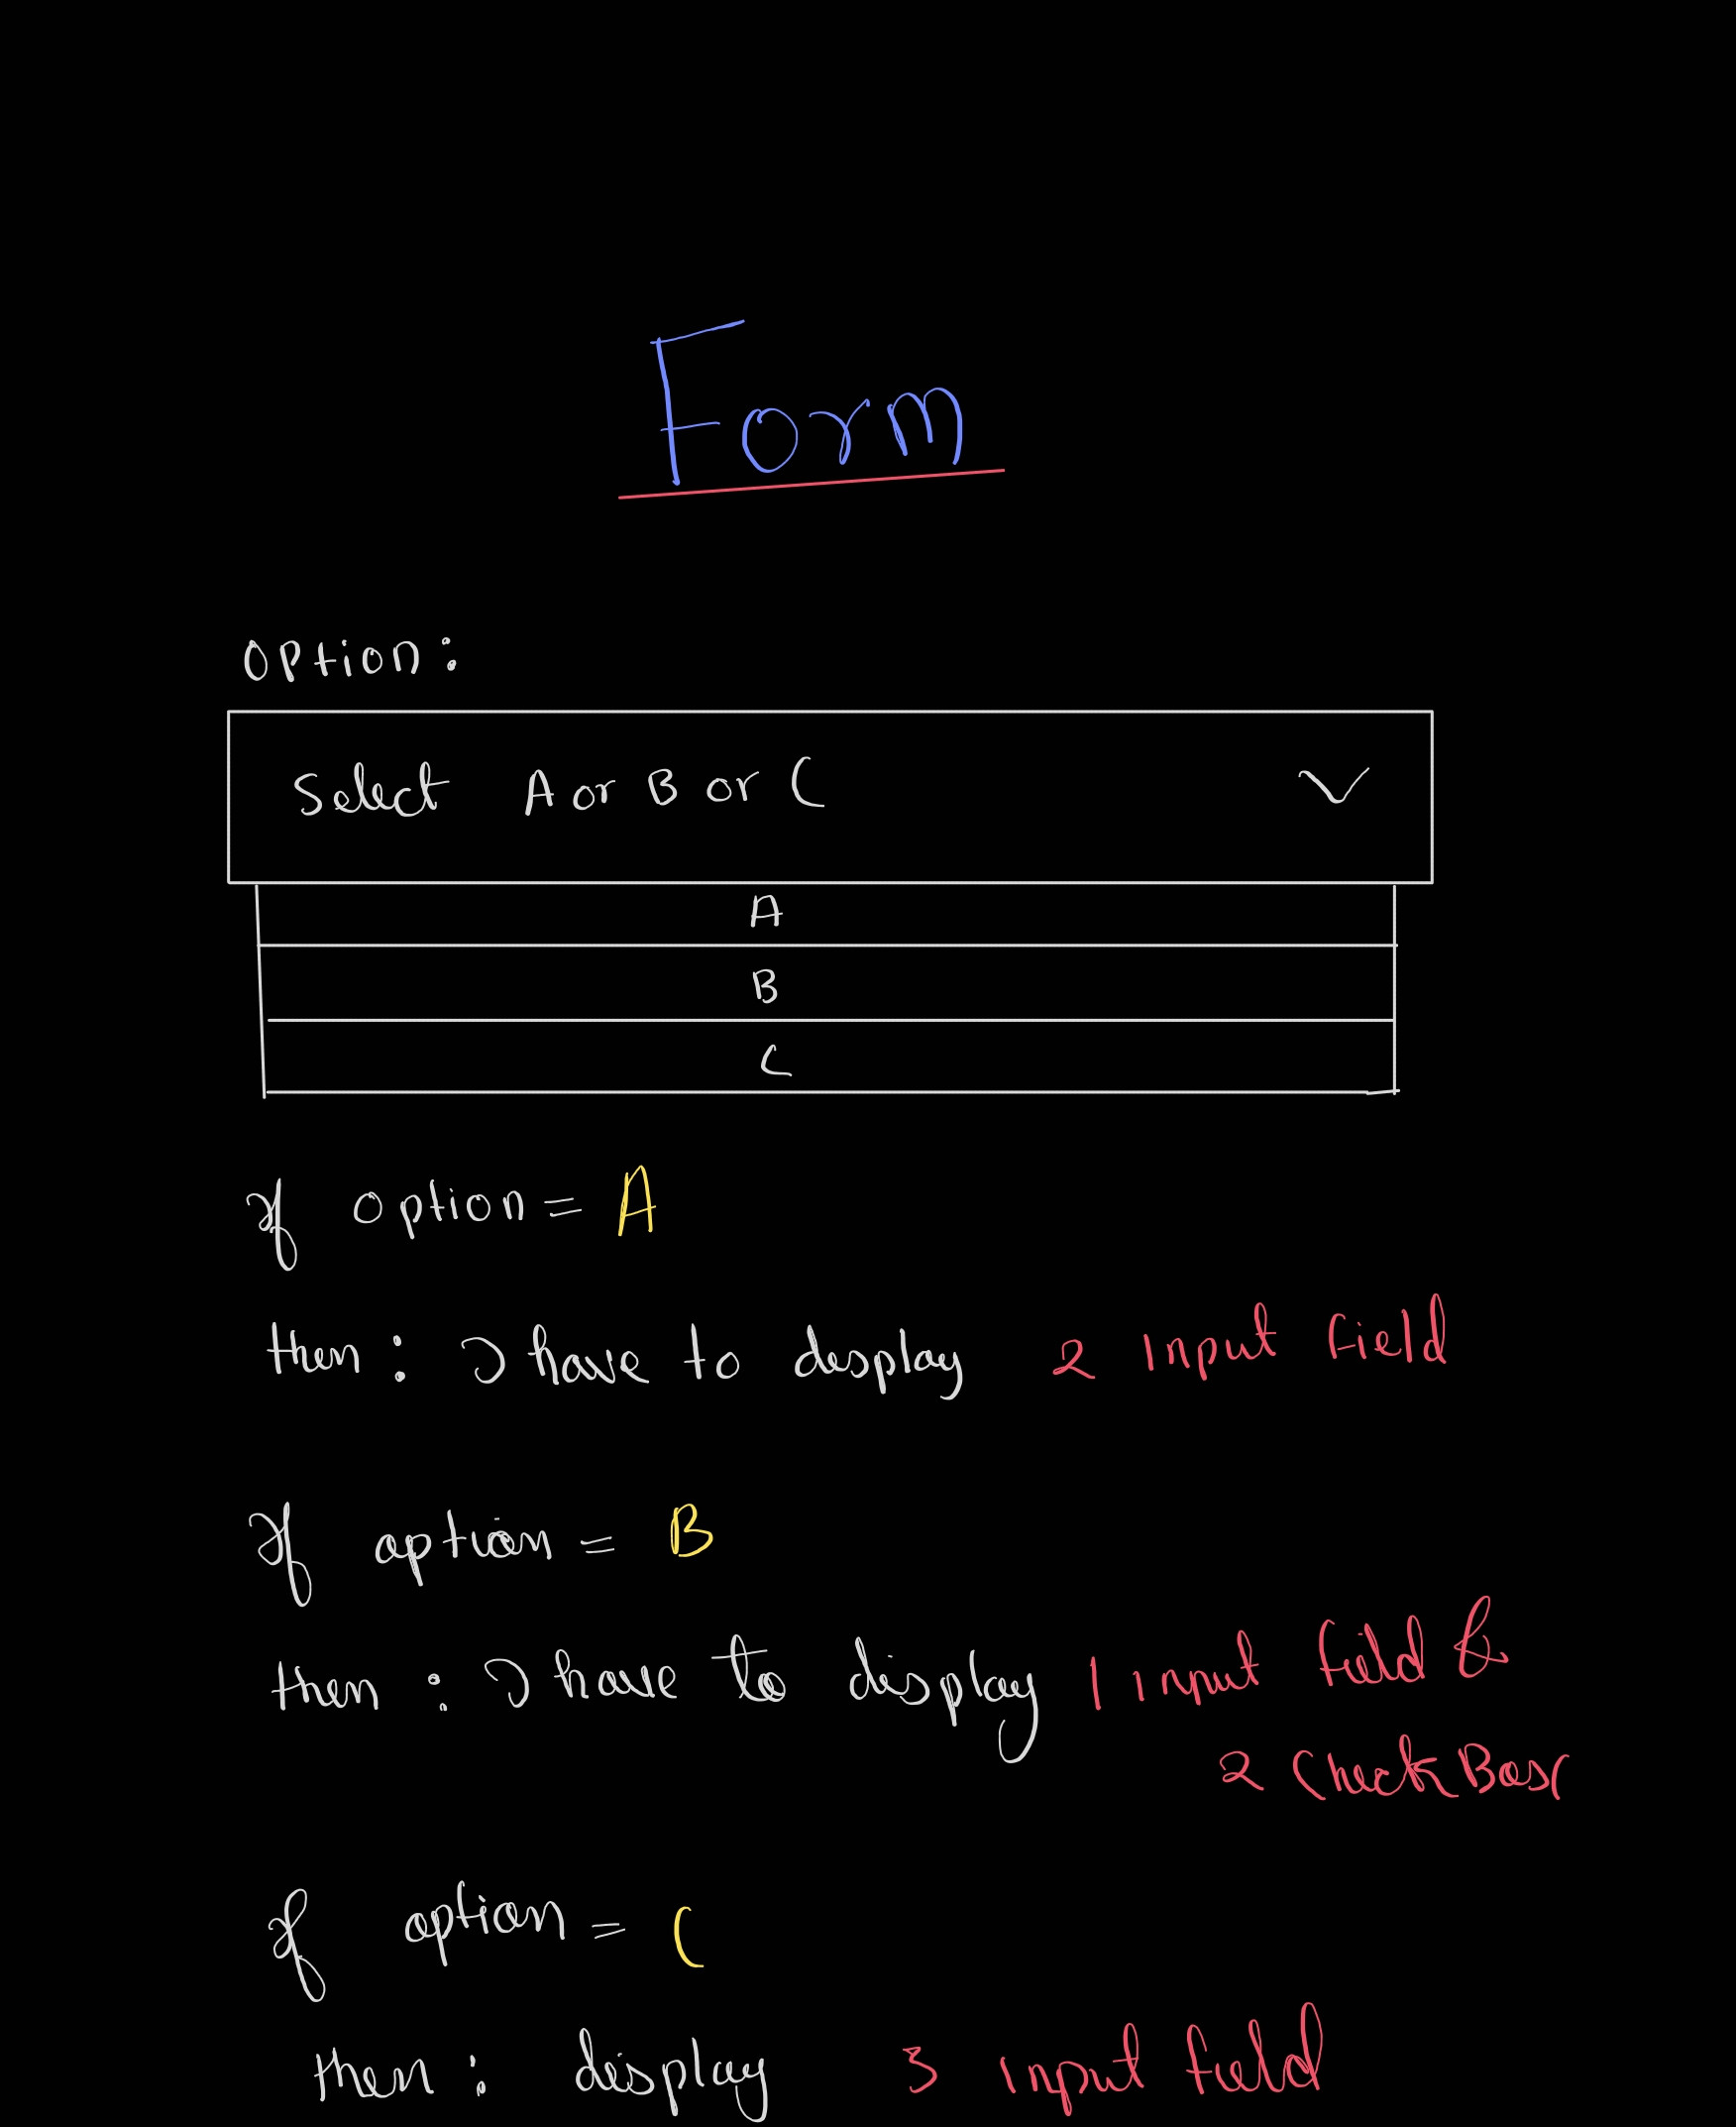 Form
Option:
Select A or B or C
A
B
C
If option = A
then : I have to display 2 Input Field
If option = B
then : I have to display 1 input field &
2 Check Box
If option = C
then : display 3 input field